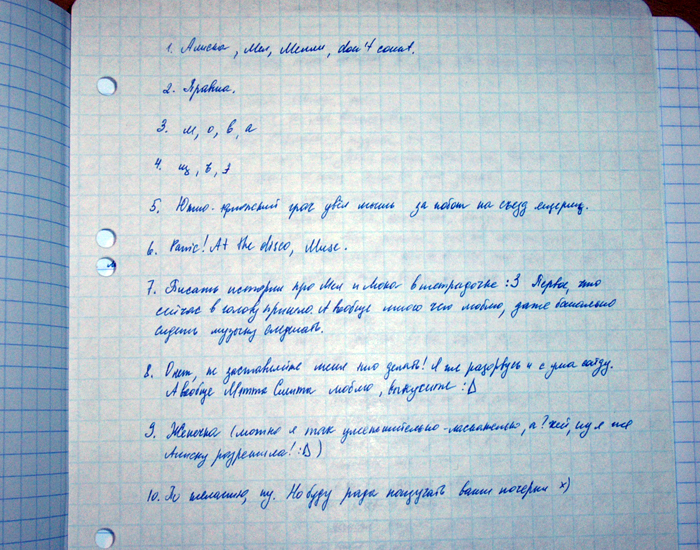 1. Алиска, Мел, Мелли, don't count.
2. Правша.
3. м, о, в, а
4. щ, ъ, э
5. Южно-эфиопский грач увёл мышь за хобот на съезд ящериц.
6. Panic! At the disco, Muse.
7. Писать истории про Мел и в тетрадочке :3 Первое, что
сейчас в голову пришло. А вообще много чего люблю, даже банально
сидеть музычку слушать.
8. О нет, не заставляйте меня это делать! Я же разорвусь и с ума сойду.
А вообще Мэтта Смита люблю, выкусите :D
9. Женечка (можно я так уменьшительно-ласкательно, а? хей, ну я же
Алиску разрешила! :D)
10. По желанию, ну. Но буду рада поизучать ваши почерки x)